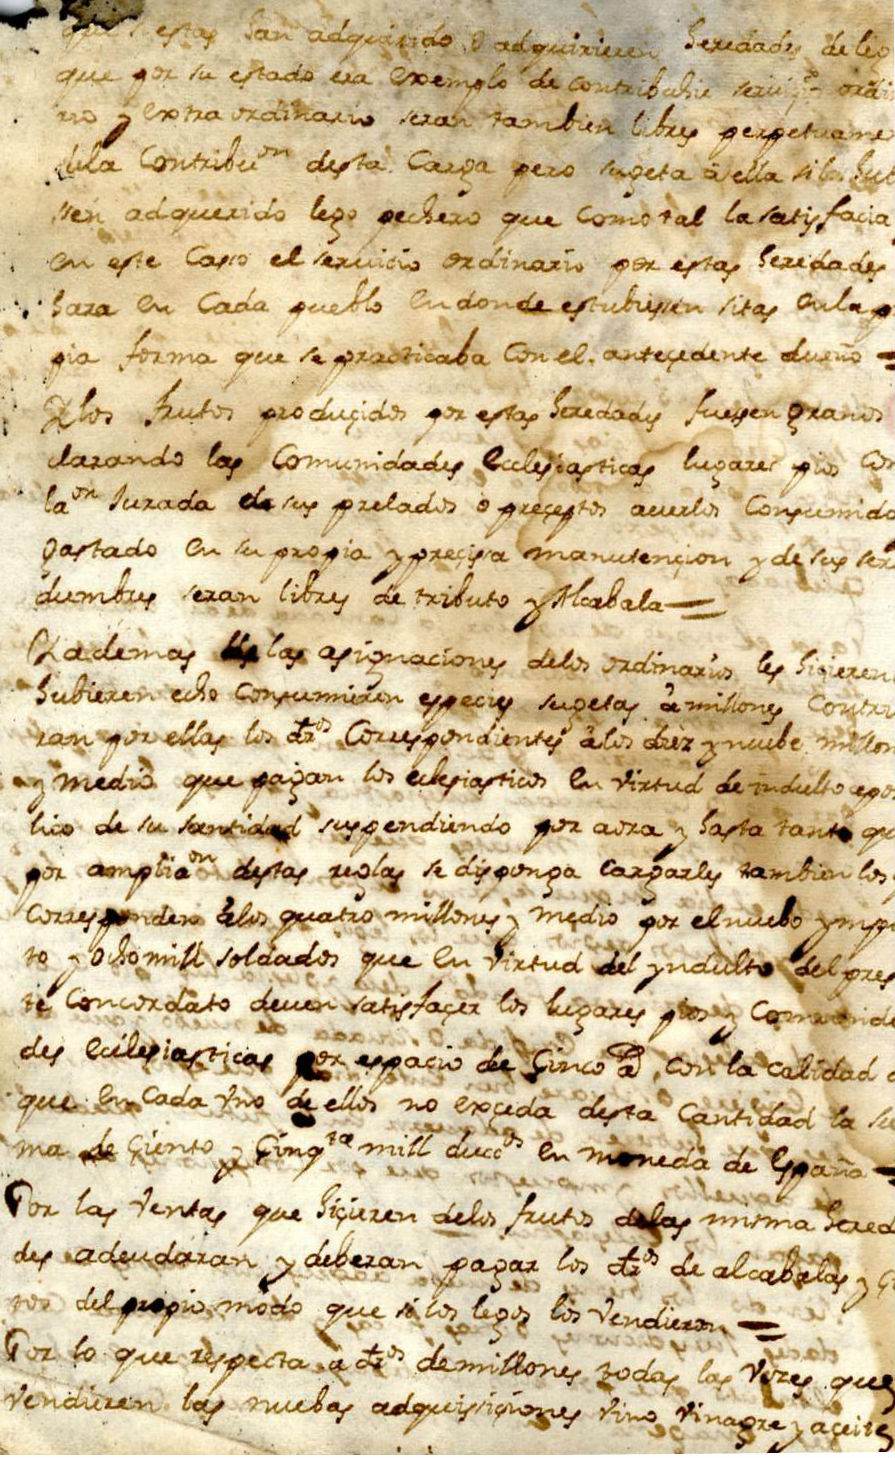 que estas han adquirido o adquirieren heredades de lego
que por su estado era exemplo de contribuhir serviçio ordi
rio y extraordinario seran tambien libres perpetuame
dela Contribuon desta Carga pero sugeta a ella si los hub
sen adquerido lego pechero que como tal la satisfacia
en este Casso el servicio ordinario por estas heredades
hara en Cada pueblo en donde estubiessen sitas en la p
pia forma que se practicaba Con el antecedente dueño =
Y los frutos produçidos por estas heredades fuessen granos
clarando las Comunidades Eclesiasticas lugares pios Con
laon Jurada de sus prelados o preçeptos averlos Consumido
gastado en su propia y preçissa manutençion y de sus ser
dumbres seran libres de tributo y Alcabala =
Y ademas las asignaciones delos ordinarios les hiçieren
hubieren echo Consumieren especies sugetas a millones Contri
ran por ellas los dros Correspondientes a los diez y nuebe millon
y medio que pagan los eclesiasticos en virtud de indulto apos
lico de su santidad suspendiendo por aora y hasta tanto que
por ampliaon destas reglas se disponga Cargarles tambien los
Corresponden a los quatro millones y medio por el nuebo ympu
to y ocho mill soldados que en virtud del yndulto del pres
te Concordato deven satisfaçer los lugares pios y Comunida
des eclesiasticas por espacio de Çinco as, con la calidad d
que en Cada vno de ellos no exçeda desta Cantidad la su
ma de Çiento y Çinqta mill duccos en moneda de España =
Por las Ventas que hiçieren delos frutos delas misma hered
des adeudaran y deberan pagar los dros de alcabalas y Çi
tos del propio modo que si los legos los Vendieron =
Por lo que respecta a dros de millones todas las Vezes que
Vendieren las nuebas adquisiçiones vino vinagre y açeite